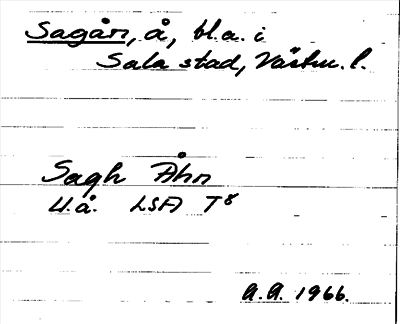 Sagån, å, bl.a. i
Sala stad, Västm. l.
Sagh Åhn
U.å. LSA T⁸
A.A. 1966.